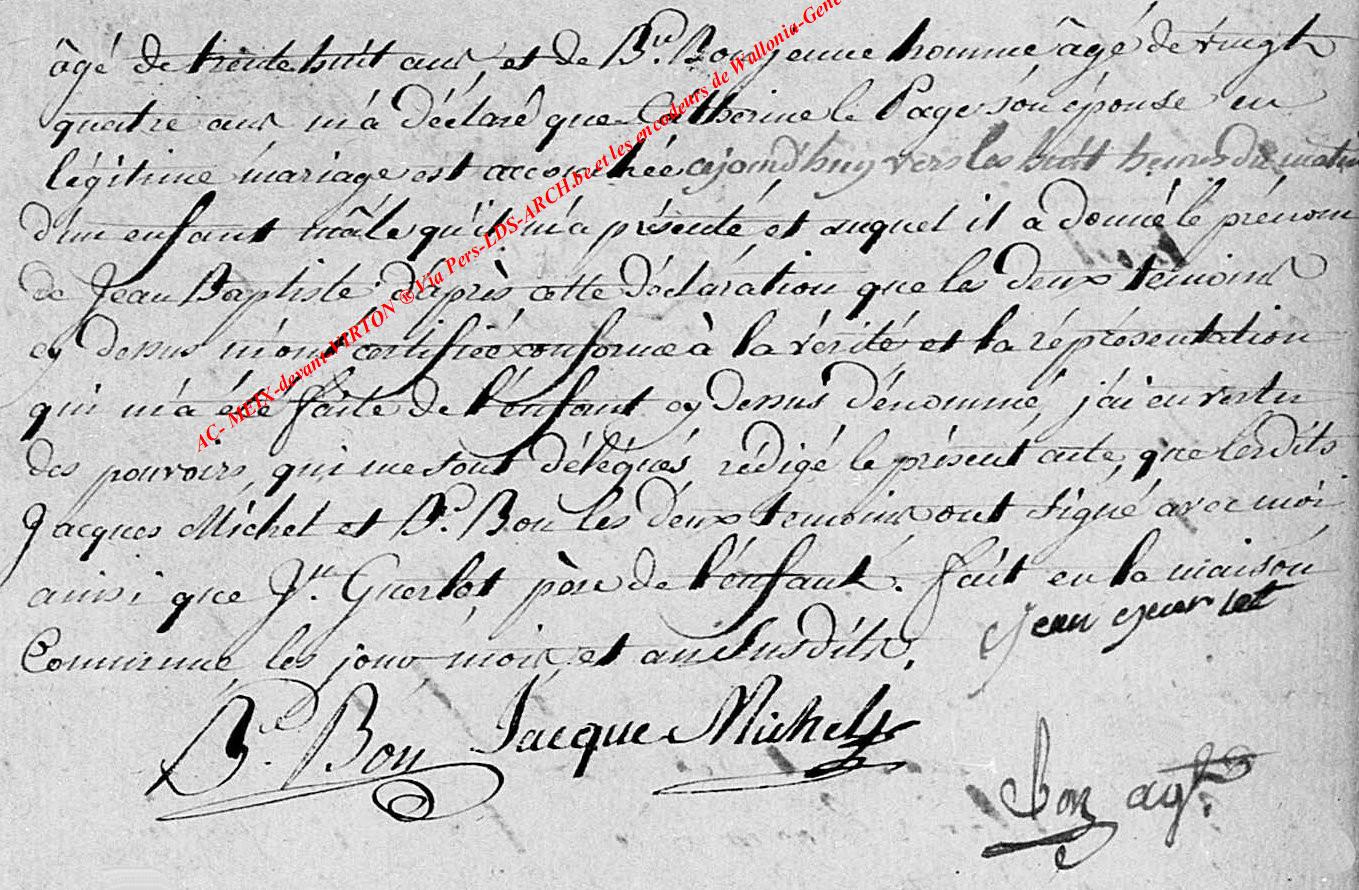 âgé de trente huit ans et de Bd. Bon jeune homme âgé de vingt
quatre ans m'a déclaré que Catherine le Page son épouse en
légitime mariage est accouchée ajourd'huy vers les huit heures du matin
d'un enfant mâle qu'il m'a présenté et auquel il a donné le prénom
de Jean Baptiste d'après cette déclaration que les deux temoins
cy dessus m'ont certifiée conforme à la vérité et la représentation
qui m'a été faite de l'enfant cy dessus dénommé, j'ai en vertu
des pouvoirs, qui me sont délégués rédigé le présent acte, que lesdits
Jacques Michel et Bd. Bon les deux temoins ont signé avec moi
ainsi que Jn. Guerlot père de l'enfant. fait en la maison
Commune les jour mois et an susdits.
Jean Guerlot
Bd. Bon Jacque Michel
Bon agt.
AC- MEIX-devant-VIRTON ® Via Pers-LDS-ARCH.be et les encodeurs de Wallonia-Gene